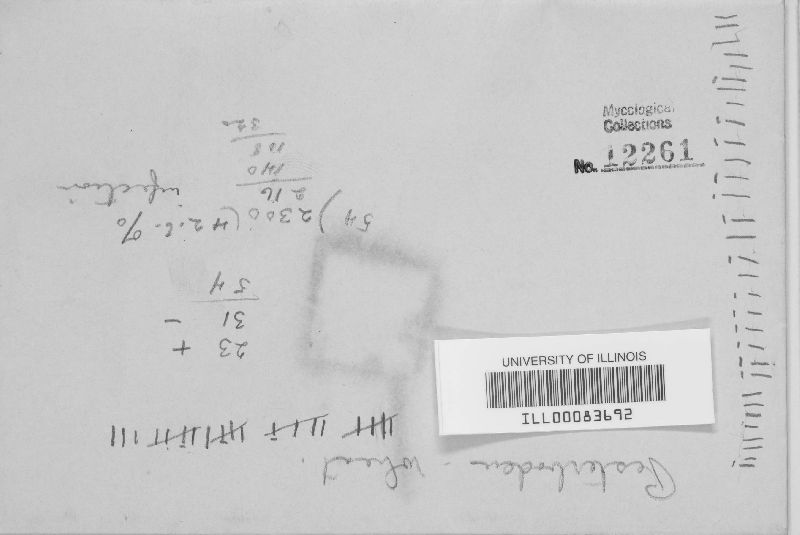 Mycological
Collections
No. 12261
UNIVERSITY OF ILLINOIS
ILL00083692
wheat.
23 +
31 -
54
54 ) 2300 ( 42.6 %
infection
216
140
108
320